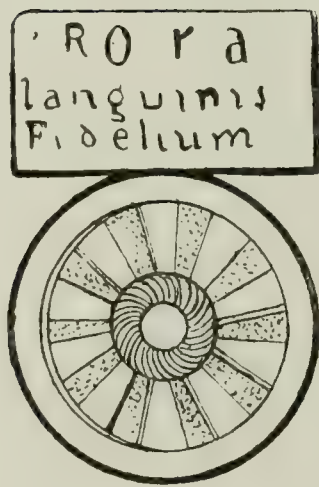 ROra
languinis
Fidelium